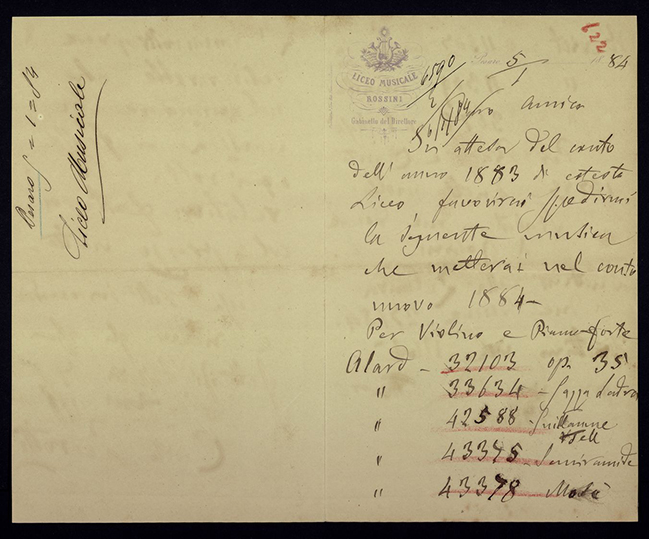 Pesaro 5=1=84
Liceo Musicale
622
LICEO MUSICALE
ROSSINI
Gabinetto del Direttore
5/1 84
6590
6/1/84
Caro Amico
In attesa del conto
dell'anno 1883 di cotesto
Liceo favorirai spedirmi
la seguente musica
che metterai nel conto
nuovo 1884-
Per Violino e Piano-forte
Alard - 32103 op. 35
" 33634 - Gazza Ladra
" 42588 - Guillaume Tell
" 43395 - Semiramide
" 43398 Mosè